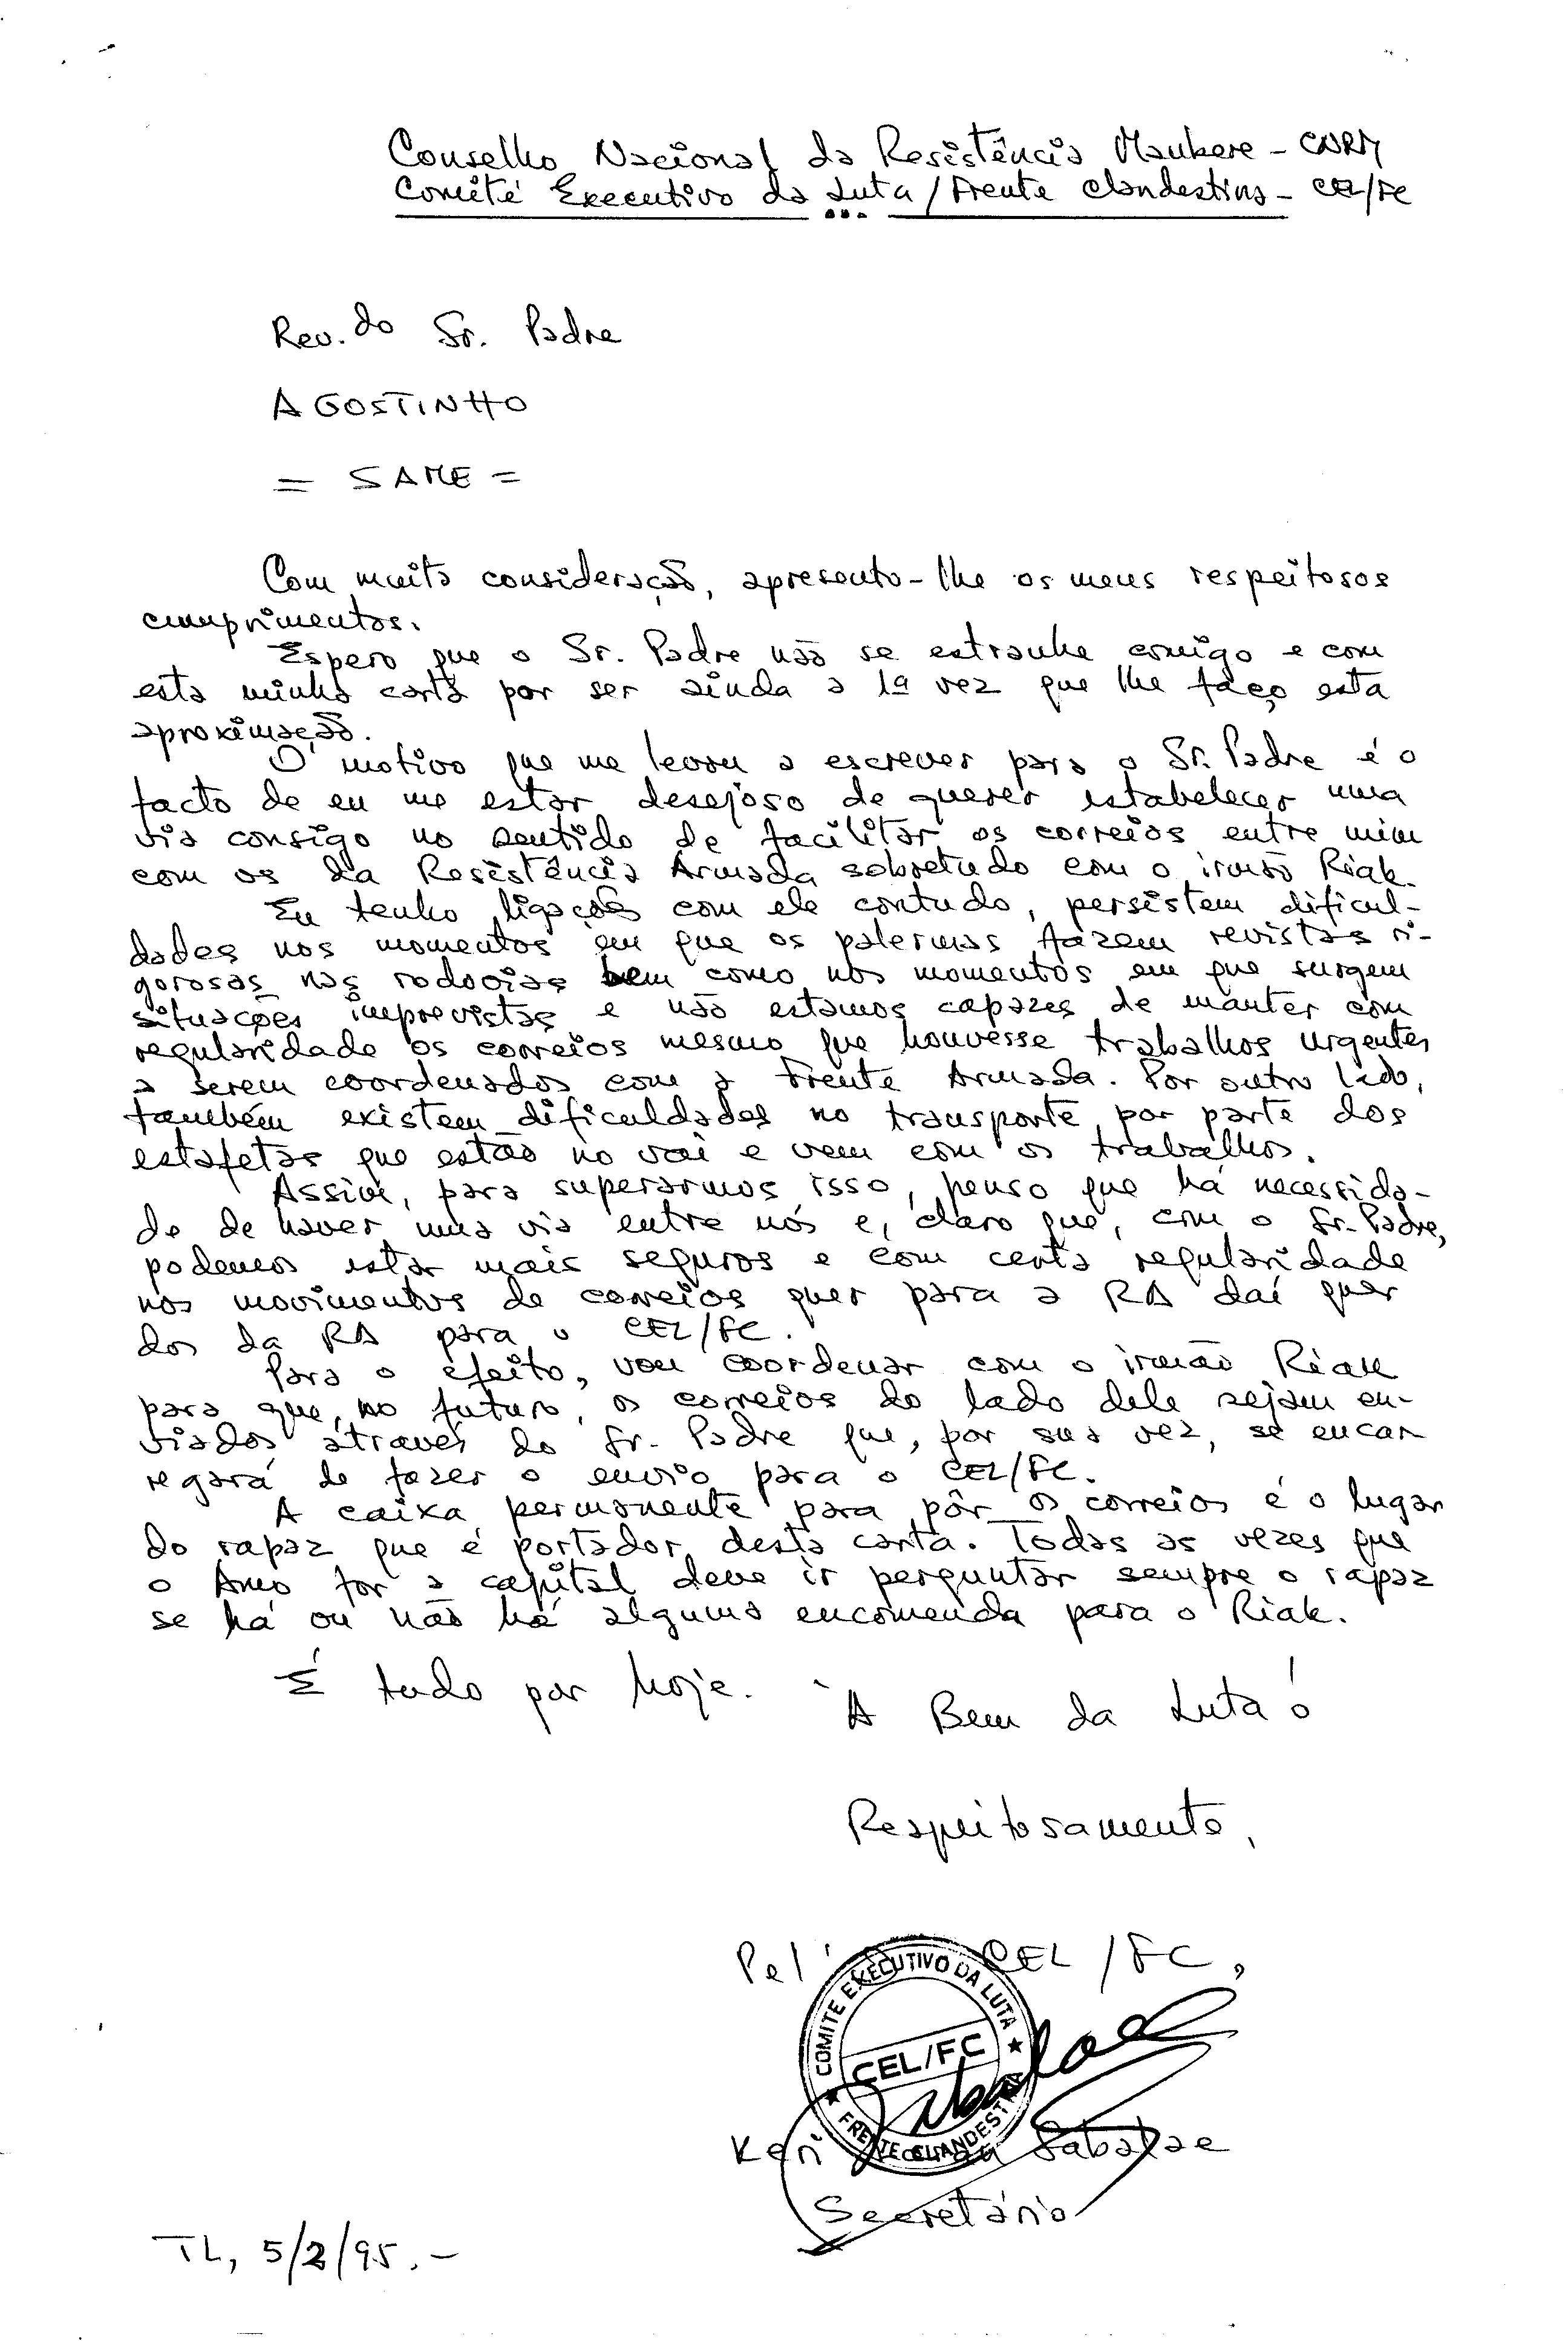 Conselho Nacional da Resistência Maubere - CNRM
Comité Executivo da Luta / Frente Clandestina - CEL/FC
Rev.do Sr. Padre
AGOSTINHO
= SAME =
Com muita consideração, apresento-lhe os meus respeitosos
cumprimentos.
Espero que o Sr. Padre não se estranhe comigo e com
esta minha carta por ser ainda a 1ª vez que lhe faço esta
aproximação.
O motivo que me levou a escrever para o Sr. Padre é o
facto de eu me estar desejoso de querer estabelecer uma
via consigo no sentido de facilitar os correios entre mim
com os da Resistência Armada sobretudo com o irmão Riak.
Eu tenho ligações com ele contudo, persistem dificul-
dades nos momentos em que os palermas fazem revistas ri-
gorosas nas rodovias bem como nos momentos em que surgem
situações imprevistas e não estamos capazes de manter com
regularidade os correios mesmo que houvesse trabalhos urgentes
a serem coordenados com a Frente Armada. Por outro lado,
também existem dificuldades no transporte por parte dos
estafetas que estão no vai e vem com os trabalhos.
Assim, para superarmos isso, penso que há necessida-
de de haver uma via entre nós e, claro que, com o Sr. Padre,
podemos estar mais seguros e com certa regularidade
nos movimentos de correios quer para a RA daí quer
dos da RA para o CEL/FC.
Para o efeito, vou coordenar com o irmão Riak
para que, no futuro, os correios do lado dele sejam en-
viados através do Sr. Padre que, por sua vez, se encar
regará de fazer o envio para o CEL/FC.
A caixa permanente para pôr os correios é o lugar
do rapaz que é portador desta carta. Todas as vezes que
o Amo for à capital deve ir perguntar sempre o rapaz
se há ou não há alguma encomenda para o Riak.
É tudo por hoje. A Bem da Luta!
Respeitosamente,
Pel' CEL/FC,
COMITE EXECUTIVO DA LUTA
CEL/FC
FRENTE CLANDESTINA
Keri Sabalae
Secretário
TL, 5/2/95.-